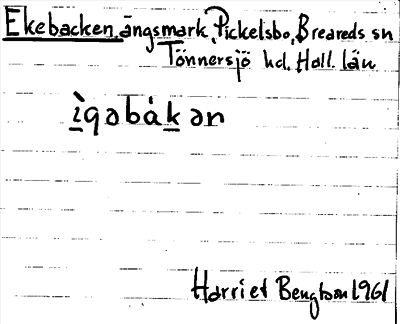 Ekebacken, ängsmark, Pickelsbo, Breareds sn
Tönnersjö hd. Hall. län
ìqəbàkən
Harriet Bengtson 1961